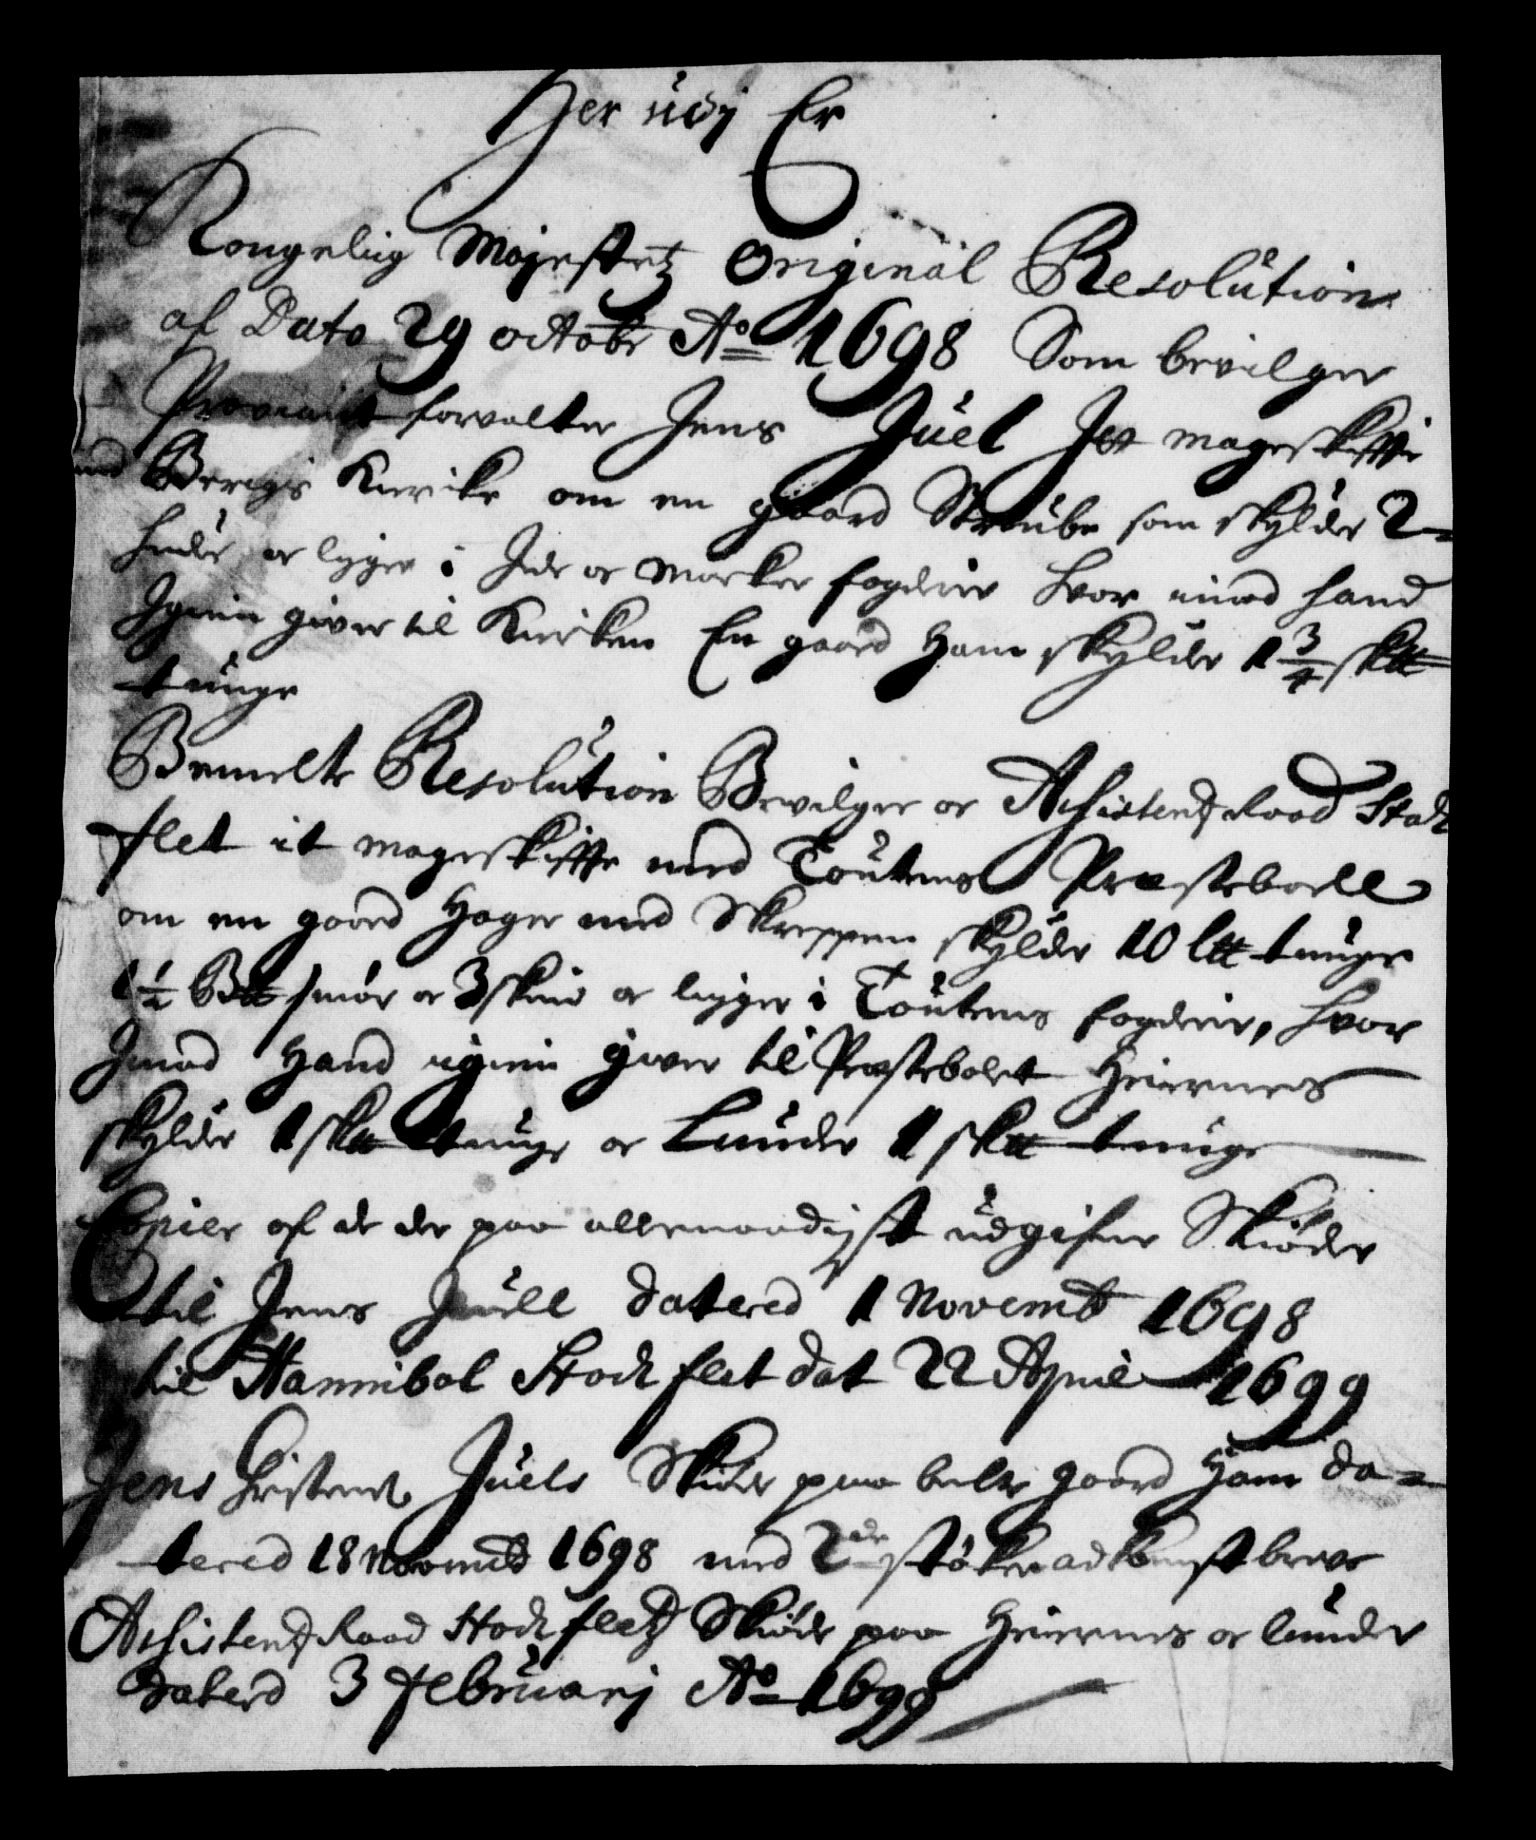 Her udj Er
Kongelig Mayestetz Original Resolution
af Dato 29 octobr Ao 1698 Som bevilger
Proviant forvalter Jens Juel Jt mageskiffte
med Bergs Kircke om en gaard Strübe som skylder 2
huder er ligger i Ide oc Marker fogderie hvor imod hand
Igien giver til Kircken En gaard Ham skylder 1 3/4 sktt
tunge
Bemelte Resolution Bevilger oc Assistentz Raad Stock
flet it mageskiffte med Toutens Præstebolle
om en gaard Hager med Skreppen skylder 10 Ltt tunge
1 1/2 Btt smör oc 3 skind oc ligger i Toutens fogderie, hvor
Jmod Hand igien giver til Præstebolet Heiernes
skylder 1 sktt tunge oc Lunder 1 sktt tunge
Copier af de der paa allernaadigst udgifne Skiöder
til Jens Juell datered 1 Novemb 1698
til Hannibal Stockflet dat 22 April 1699
Jens Christens. Juels Skiöde paa belte gaard Ham da-
tered 18 Novemb 1698 med 2de stöker adkomst breve
Assistentz Raad Stockfletz Skiöde paa Heiernes oc lunder
daterd 3 februarj Ao 1699